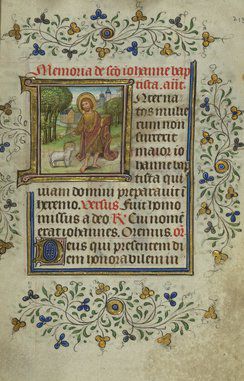 Memoria de sco iohanne bap
tista. ant.
Inter na
tos mulie
rum non
surrexit
maior io
hanne bap
tista qui
uiam domini preparauit i
heremo. Versus. Fuit homo
missus a deo R Cui nomē
erat iohannes. Oremus. or.
Deus qui presentem di
em honorabilem in